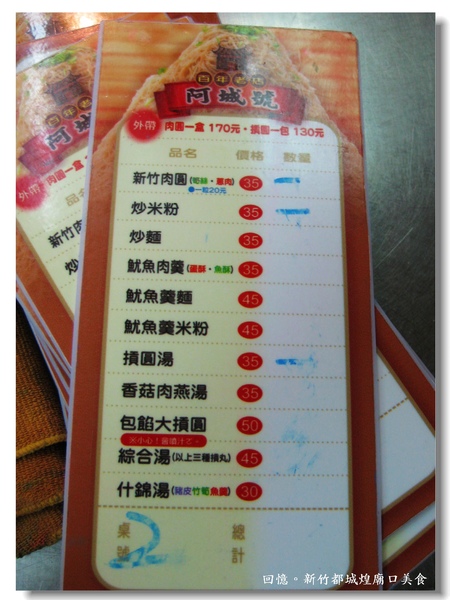 百年老店
阿城號
外帶 肉圓一盒 170元・摃圓一包 130元
品名 價格 數量
新竹肉圓(筍絲・蔥肉) 35
●一粒20元
炒米粉 35
炒麵 35
魷魚肉羹(蛋酥・魚酥) 35
魷魚羹麵 45
魷魚羹米粉 45
摃圓湯 35
香菇肉燕湯 35
包餡大摃圓 50
※小心!醬噴汁
綜合湯(以上三種摃丸) 45
什錦湯(豬皮竹筍魚餃) 30
桌號 2 總計
回憶。新竹都城煌廟口美食